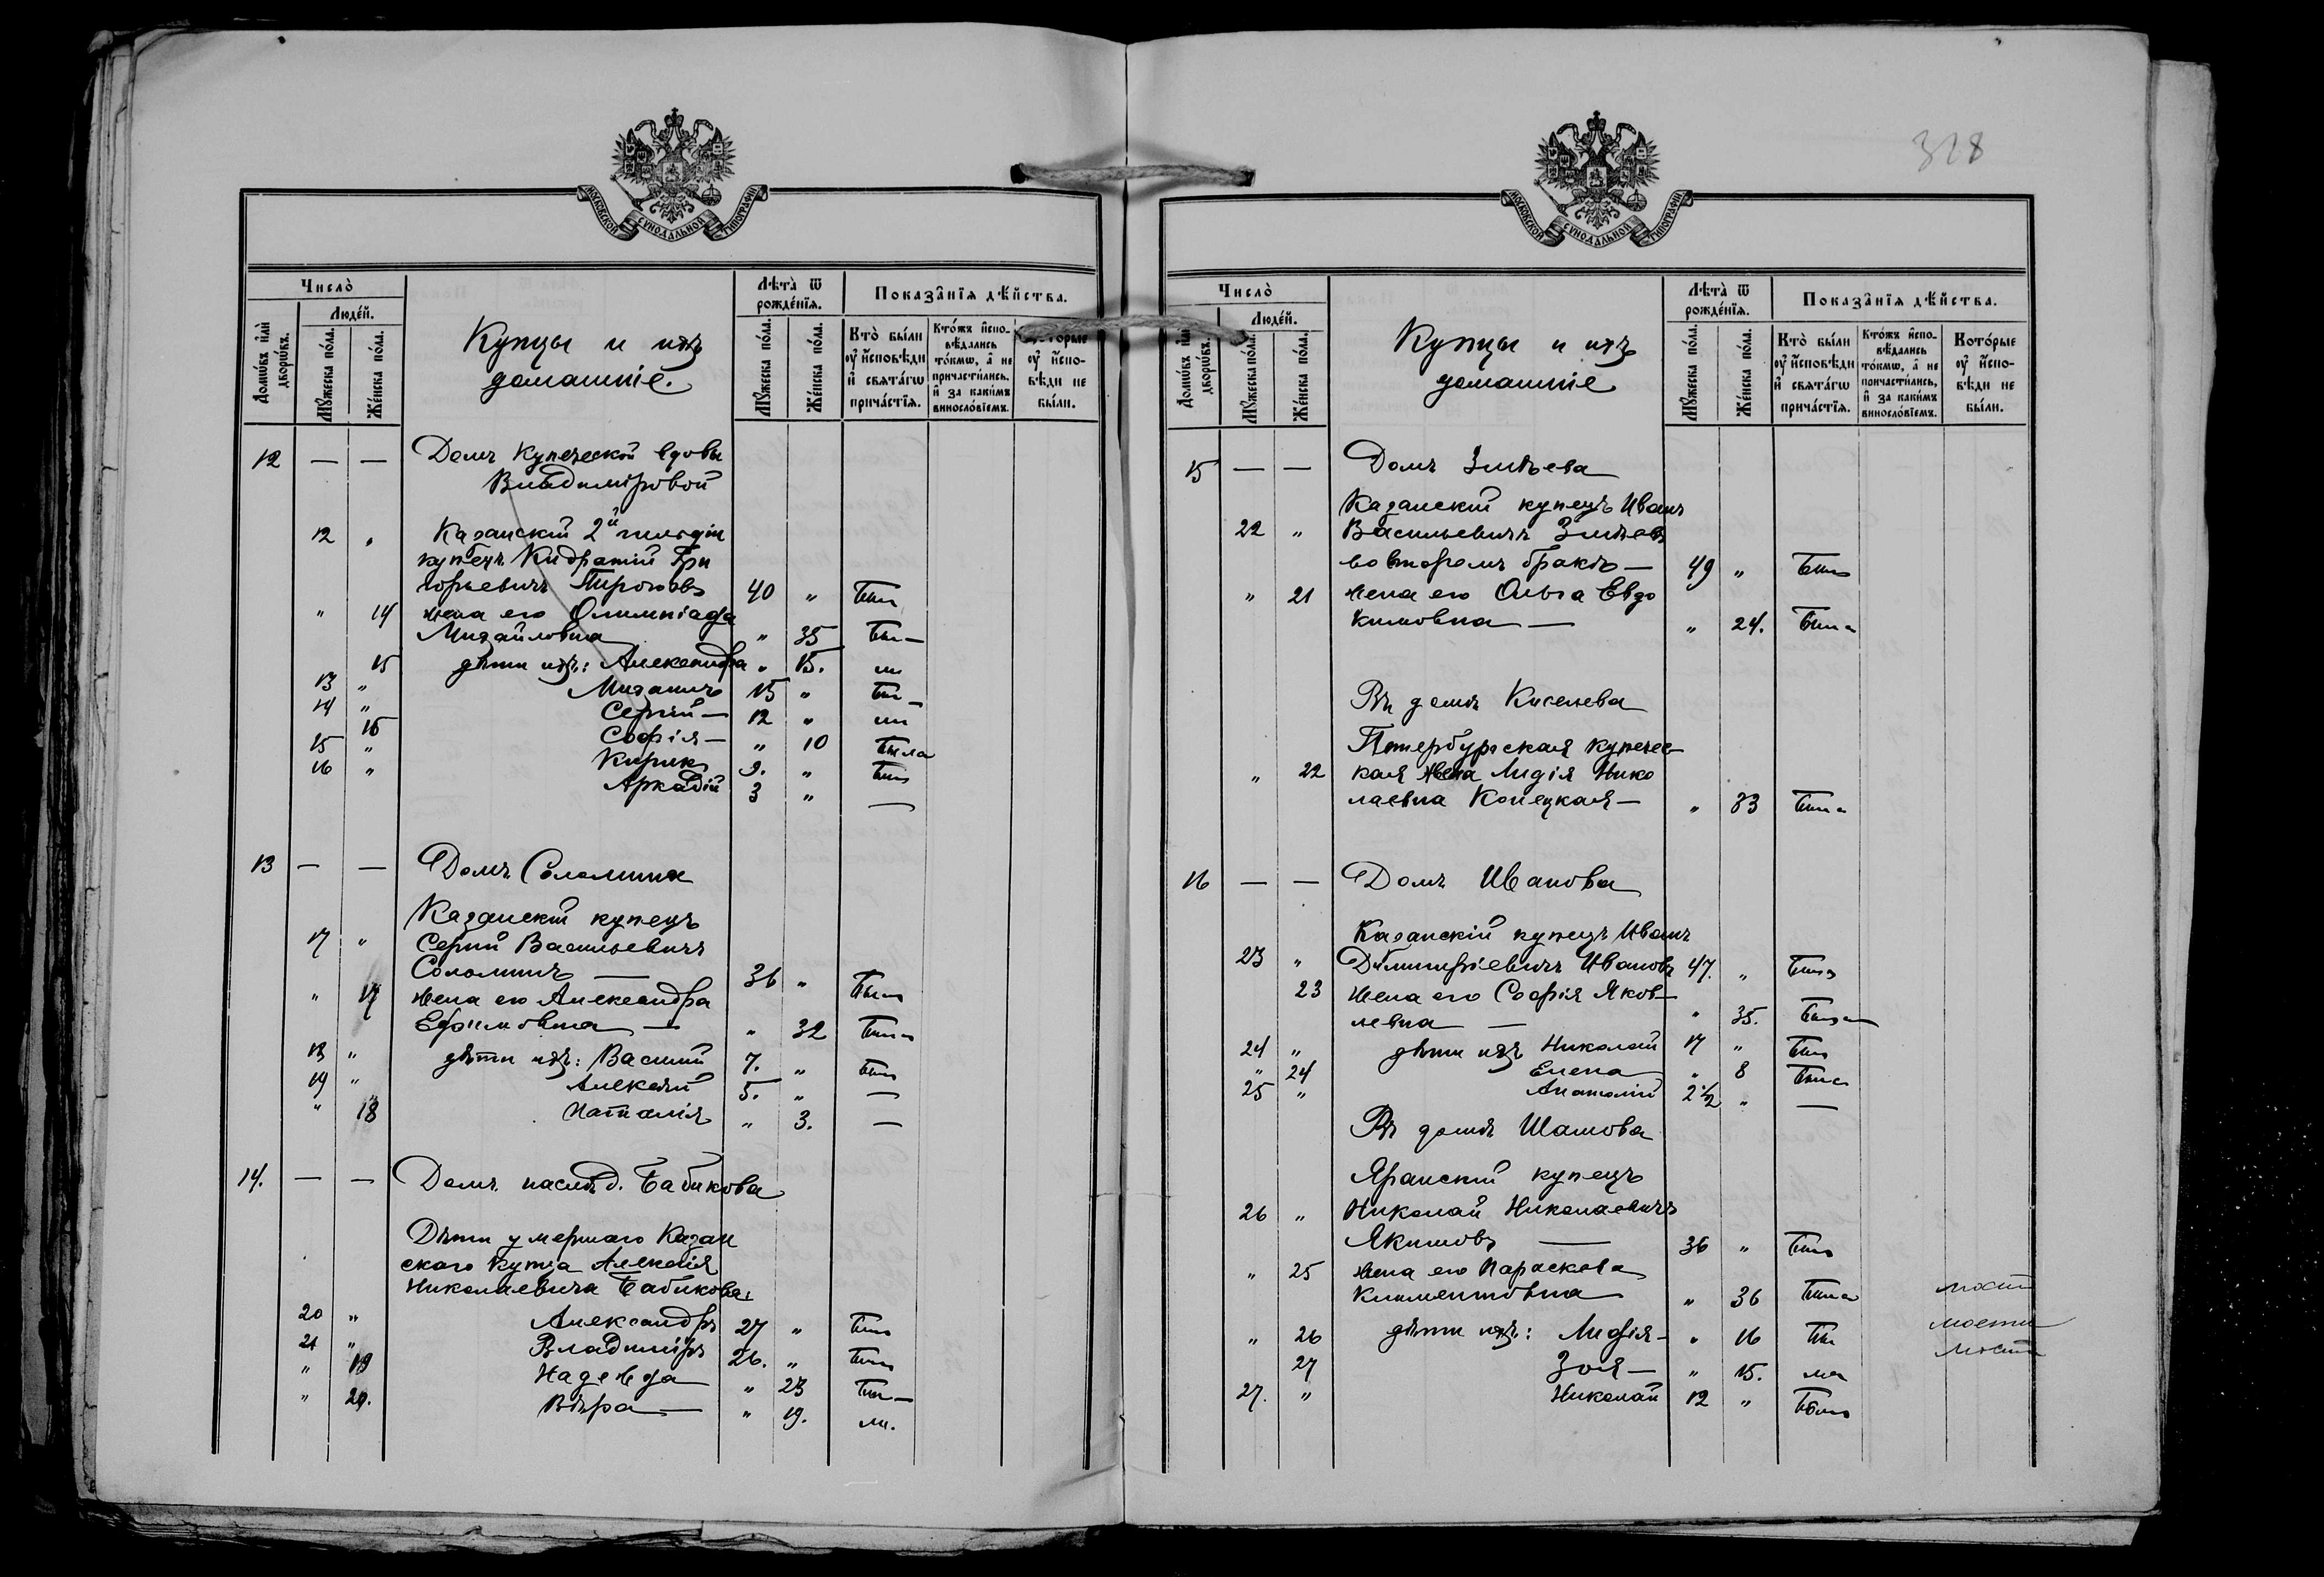 МОСКОВСКОЙ СѴНОДАЛЬНОЙ ТИПОГРАФІИ
Число̀
Людє́й.
Домѡ́въ и҆лѝ дворѡ́въ.
Мꙋ́жеска по́ла.
Же́нска по́ла.
Купцы и ихъ
домашніе.
Лѣта̀ ѿ рожде́нїѧ.
Мꙋ́жеска по́ла.
Же́нска по́ла.
Показа̑нїѧ дѣ́йства.
Кто̀ бы́ли ᲂу҆ и҆сповѣди и҆ свѧта́гѡ прича́стїѧ.
Кто́жъ и҆спо-вѣ́дались то́кмѡ, а҆ не причасти́лись, и҆ за каки́мъ винослові́емъ.
12 — — Домъ Купеческой вдовы
Владиміровой
12 „ Казанскій 2й гильдіи
купецъ Кидратій Гри
горьевичъ Пироговъ 40 „ Былъ
„ 14 жена его Олимпіада
Михайловна „ 35 Бы—
15 дѣти ихъ: Александра „ 15. ли
13 „ Михаилъ 15 „ Бы—
14 „ Сергѣй — 12 „ ли
16 Софія — „ 10 Была
15 „ Кирикъ 9. „ Былъ
16 „ Аркадій 3 „ —
13 — — Домъ Соломина
Казанскій купецъ
17 „ Сергѣй Васильевичъ
Соломинъ — 36 „ Былъ
„ 17 жена его Александра
Ефимовна — „ 32 Была
18 „ дѣти ихъ: Василій 7. „ Былъ
19 „ Алексѣй 5. „ —
„ 18 Наталія „ 3. —
14. — — Домъ наслѣд. Бабикова
Дѣти умершаго Казан
скаго купца Алексѣя
Николаевича Бабикова:
20 „ Александръ 27 „ Былъ
21 „ Владиміръ 26. „ Былъ
„ 19 Надежда „ 23 Бы—
„ 20. Вѣра — „ 19. ли.
328
МОСКОВСКОЙ СѴНОДАЛЬНОЙ ТИПОГРАФІИ
Число̀
Людє́й.
Мꙋ́жеска по́ла.
Же́нска по́ла.
Купцы и ихъ
домашніе
Лѣта̀ ѿ рожде́нїѧ.
Мꙋ́жеска по́ла.
Же́нска по́ла.
Показа̑нїѧ дѣ́йства.
Кто̀ бы́ли ᲂу҆ и҆сповѣди и҆ свѧта́гѡ прича́стїѧ.
Кто́жъ и҆спо-вѣ́дались то́кмѡ, а҆ не причасти́лись, и҆ за каки́мъ винослові́емъ.
Кото́рые ᲂу҆ и҆спо-вѣди не бы́ли.
15 — — Домъ Змѣева
Казанскій купецъ Иванъ
22 „ Васильевичъ Змѣевъ
во второмъ бракѣ — 49 „ Былъ
„ 21 жена его Ольга Евдо
кимовна — „ 24. Была
Въ домѣ Киселева
Петербургская купечес
„ 22 кая жена Лидія Нико
лаевна Конецкая — „ 33 Была
16 — — Домъ Иванова
Казанскій купецъ Иванъ
23 „ Дмитріевичъ Ивановъ 47. „ Былъ
23 жена его Софія Яков-
левна — „ 35. Была
24 „ дѣти ихъ Николай 17 „ Былъ
„ 24 Елена „ 8 Была
25 „ Анатолій 2½ „ —
Въ домѣ Шамова
Яранскій купецъ
26 „ Николай Николаевичъ
Якимовъ — 36 „ Былъ
„ 25 жена его Параскева
Климентовна „ 36 Была
„ 26 дѣти ихъ: Лидія — „ 16 Бы
27 Зоя — „ 15. ла
27. „ Николай 12 „ Былъ